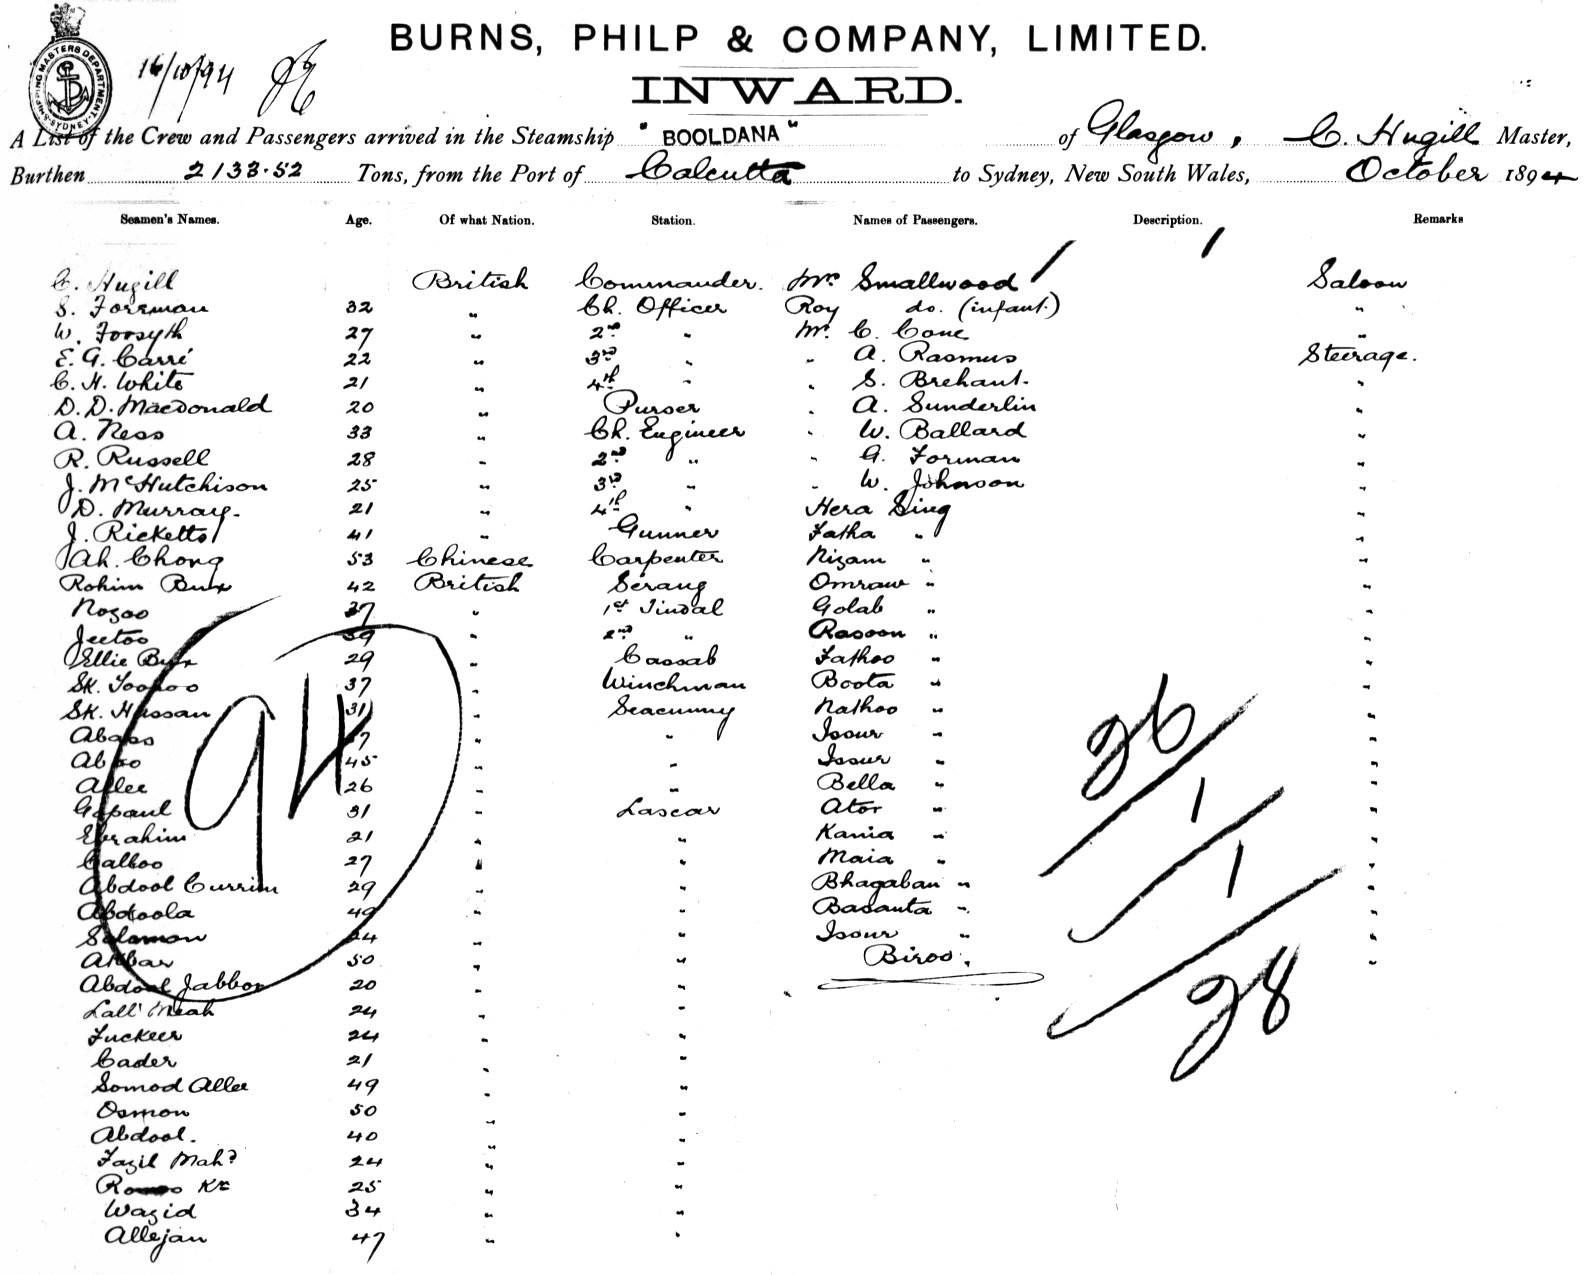 BURNS, PHILP & COMPANY, LIMITED.
INWARD.
SHIPPING MASTERS DEPARTMENT SYDNEY
16/10/94
A List of the Crew and Passengers arrived in the Steamship "BOOLDANA" of Glasgow, C. Hugill Master,
Burthen 2133.52 Tons, from the Port of Calcutta to Sydney, New South Wales, October 1894
Seamen's Names. Age. Of what Nation. Station. Names of Passengers. Description. Remarks
C. Hugill British Commander. Mrs Smallwood / / Saloon
S. Forrman 32 " Ch. Officer Roy do. (infant.) "
W. Forsyth 27 " 2nd " Mr. C. Cone "
E. G. Carré 22 " 3rd " " A. Rasmus Steerage.
C. H. White 21 " 4th " " S. Brehaut. "
D. D. Macdonald 20 " Purser " A. Sunderlin "
A. Ness 33 " Ch. Engineer " W. Ballard "
R. Russell 28 " 2nd " " G. Forman "
J. McHutchison 25 " 3rd " " W. Johnson "
D. Murray. 21 " 4th " Hera Sing "
J. Ricketts 41 " Gunner Fatha " "
Ah. Chong 53 Chinese Carpenter Nizam " "
Rohim Bux 42 British Serang Omraw " "
Nozoo 37 " 1st Tindal Golab " "
Jeetoo 39 " 2nd " Rasoon " "
Ellie Bux 29 " Cassab Fathoo " "
Sk. Toofoo 37 " Winchman Boota " "
Sk. Hassan 31 " Seacunny Nathoo " "
Abass 37 " " Issur " "
Aboo 45 " " Issur " "
Allee 26 " " Bella " "
Gopaul 31 " Lascar Ator " "
Ebrahim 21 " " Kania " "
Calloo 27 " " Maia " "
Abdool Currim 29 " " Bhagaban " "
Abdoola 49 " " Basanta " "
Solomon 24 " " Issur " "
Akbar 50 " " Biroo. "
Abdool Jabbor 20 " "
Lall Meah 24 " "
Fuckeer 24 " "
Cader 21 " "
Somod Allee 49 " "
Osmon 50 " "
Abdool. 40 " "
Fazil Mahd 24 " "
25 " "
Wazid 34 " "
Allejan 47 " "
94
26
1
1
28